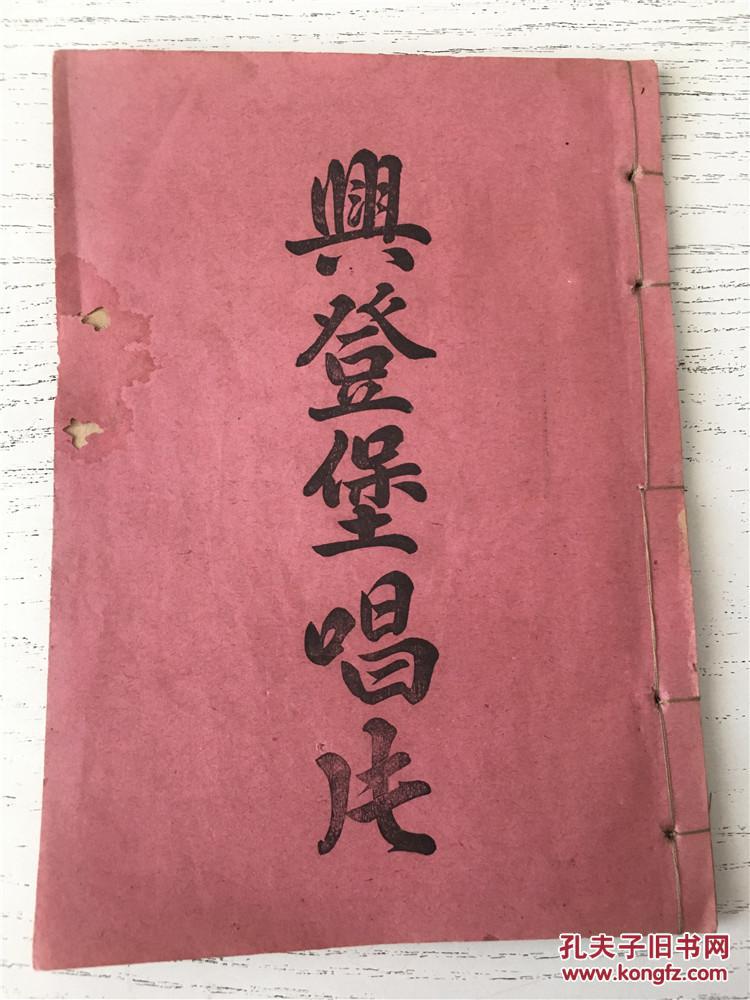 興登堡唱片
孔夫子旧书网
www.kongfz.com